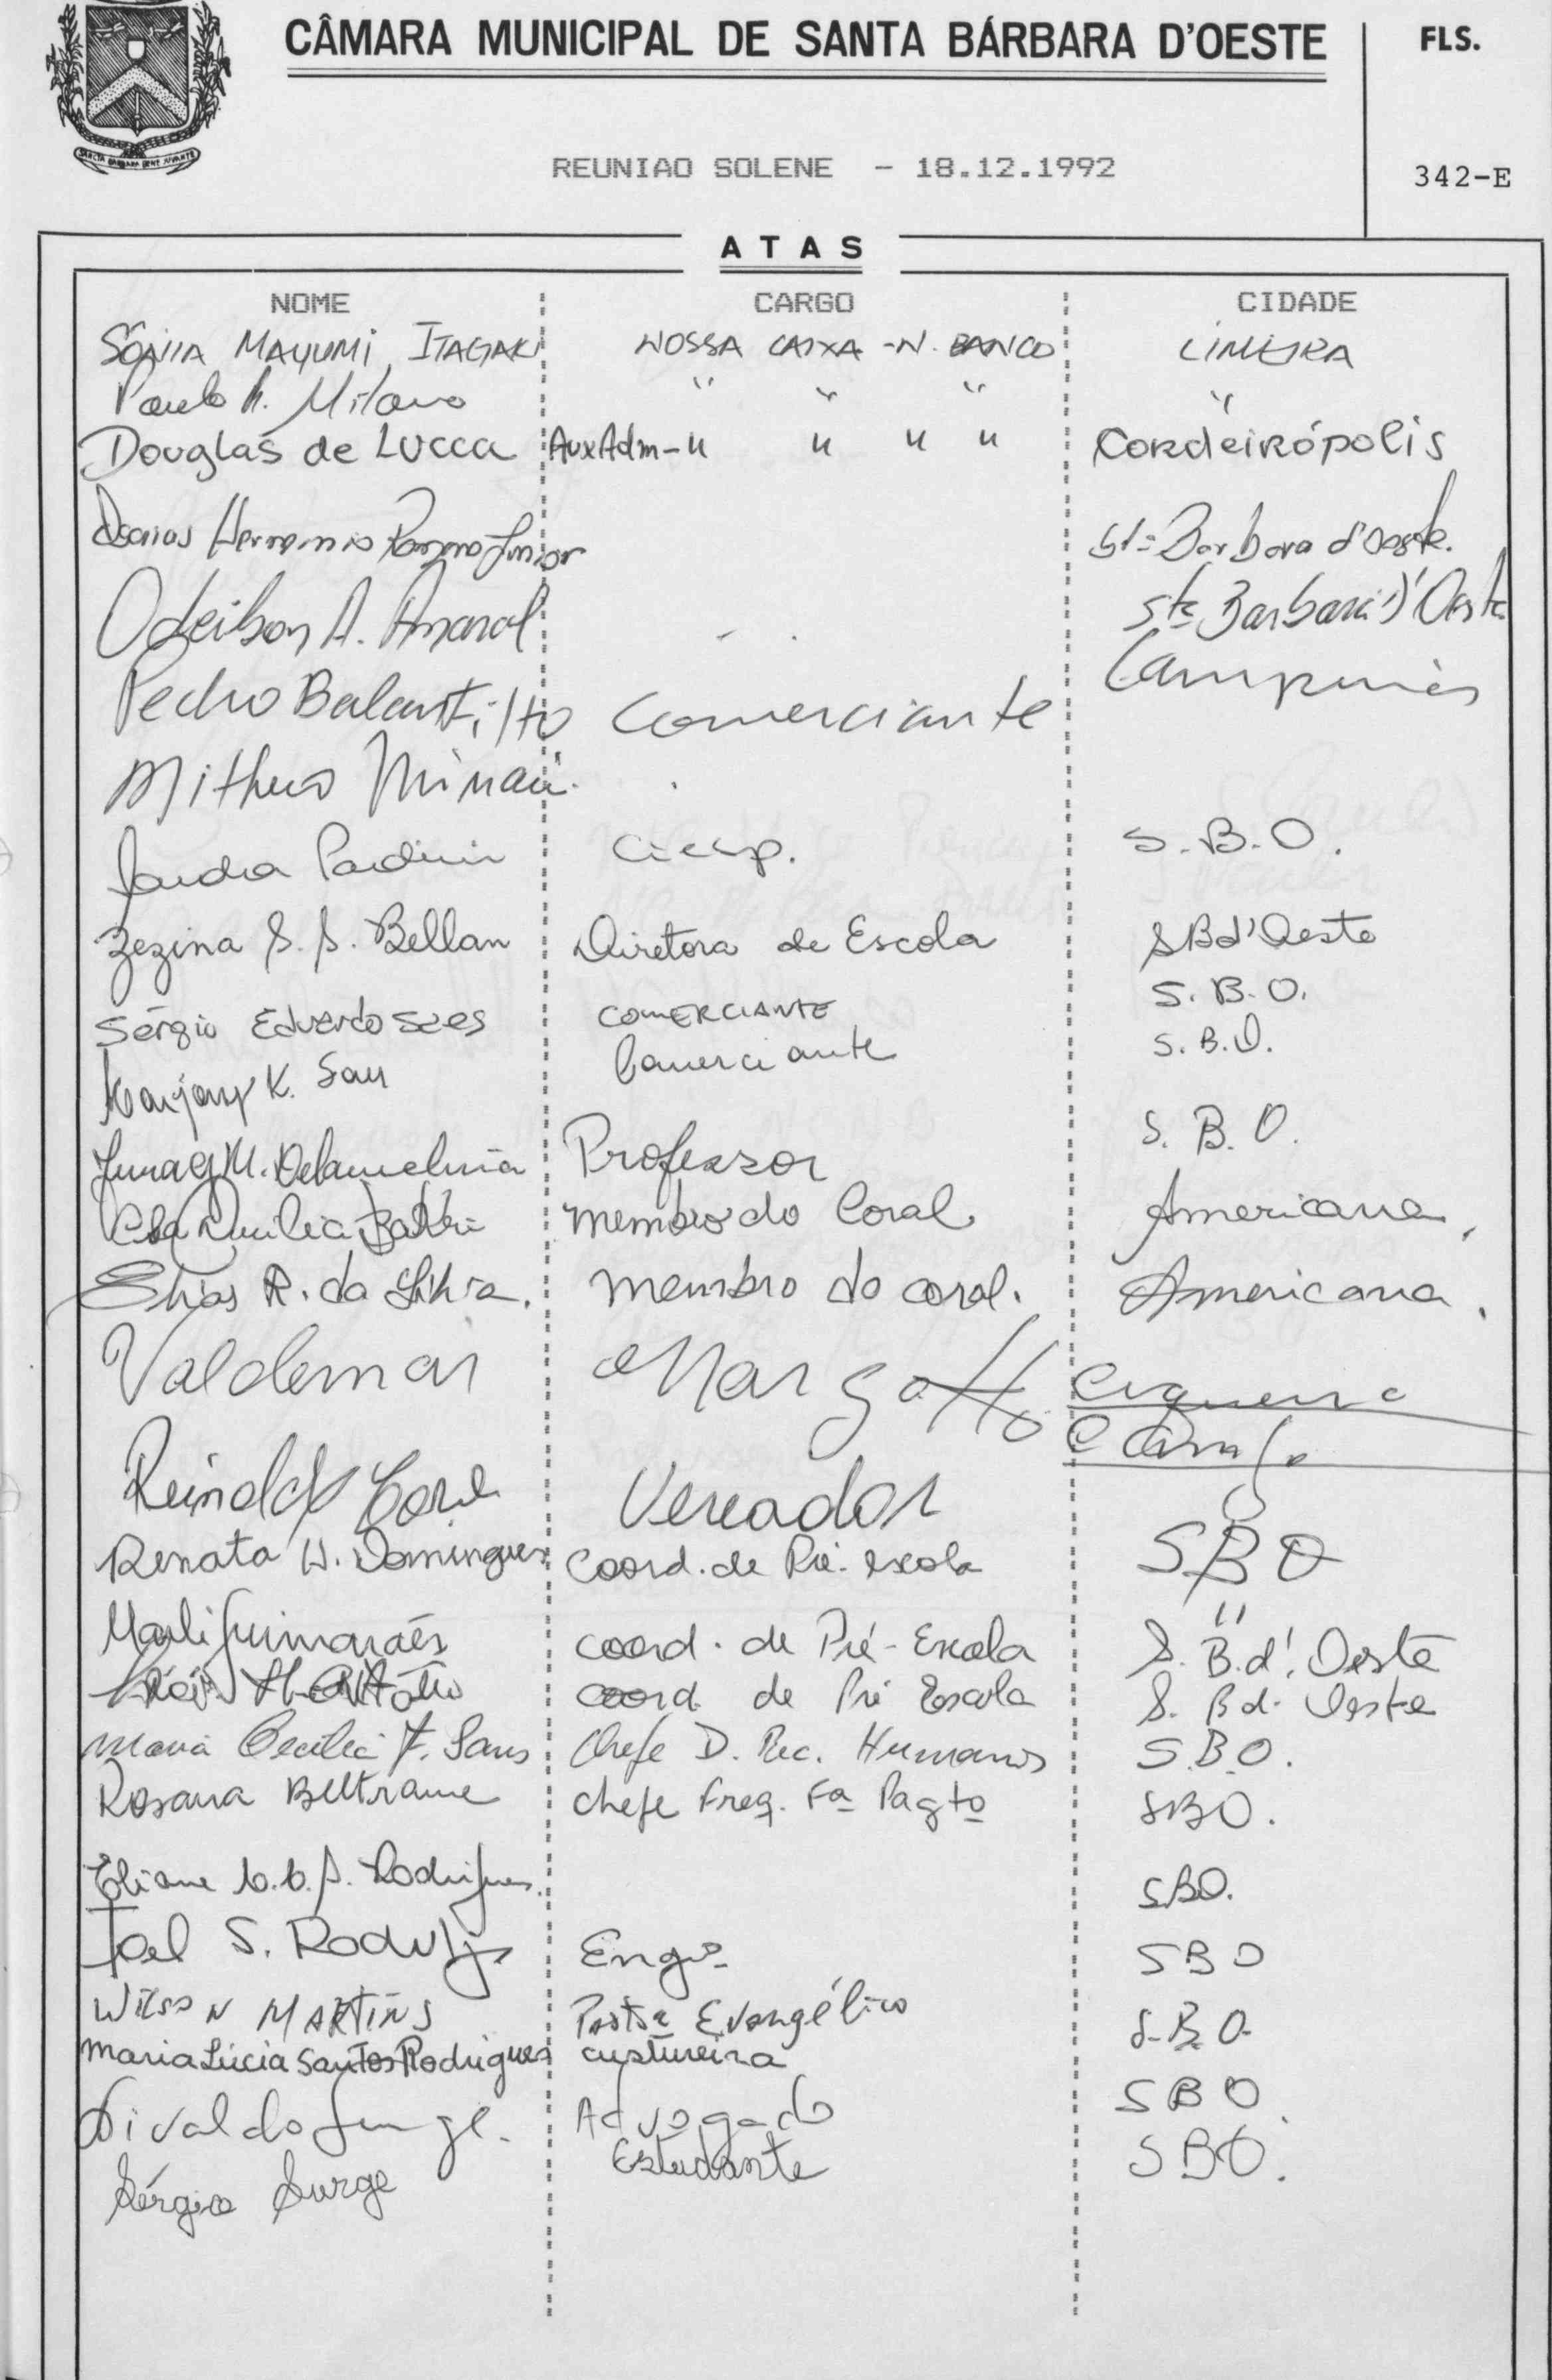 CÂMARA MUNICIPAL DE SANTA BÁRBARA D'OESTE
FLS.
REUNIAO SOLENE - 18.12.1992
342-E
ATAS
NOME CARGO CIDADE
SÔNIA MAYUMI ITAGAKI NOSSA CAIXA -N. BANCO LIMEIRA
Paulo Milano " " " "
Douglas de LUCCA Aux Adm - " " " " Cordeirópolis
Junior Stª Barbara d'Oeste.
Odeilson A. Amaral Stª Barbara D'Oeste
Pedro Comerciante Campinas
Ciesp. S.B.O.
Zezina S. S. Bellan Diretora de Escola SBd'Oeste
Sérgio Eduardo Saes COMERCIANTE S.B.O.
K. Comerciante S.B.O.
Professor S.B.O.
membro do Coral Americana,
Elias R. da Silva. membro do coral. Americana.
Valdemar Margatto
Vereador SBO
Renata W. Domingues Coord. de Pré-escola "
Marli Guimarães coord. de Pré-Escola S. B.d'. Oeste
coord. de Pré Escola S. Bd. Oeste
Maria Cecília F. Chefe D. Rec. Humanos S.B.O.
Rosana Beltrame chefe Freq. Fª Pagto SBO.
Eliane Rodrigues. SBO.
Joel S. Engº SBO
WILSON MARTINS Pastor Evangélico S.B.O.
Maria Lúcia Santos Rodrigues custureira SBO
Advogado SBO.
Sérgio Surge Estudante